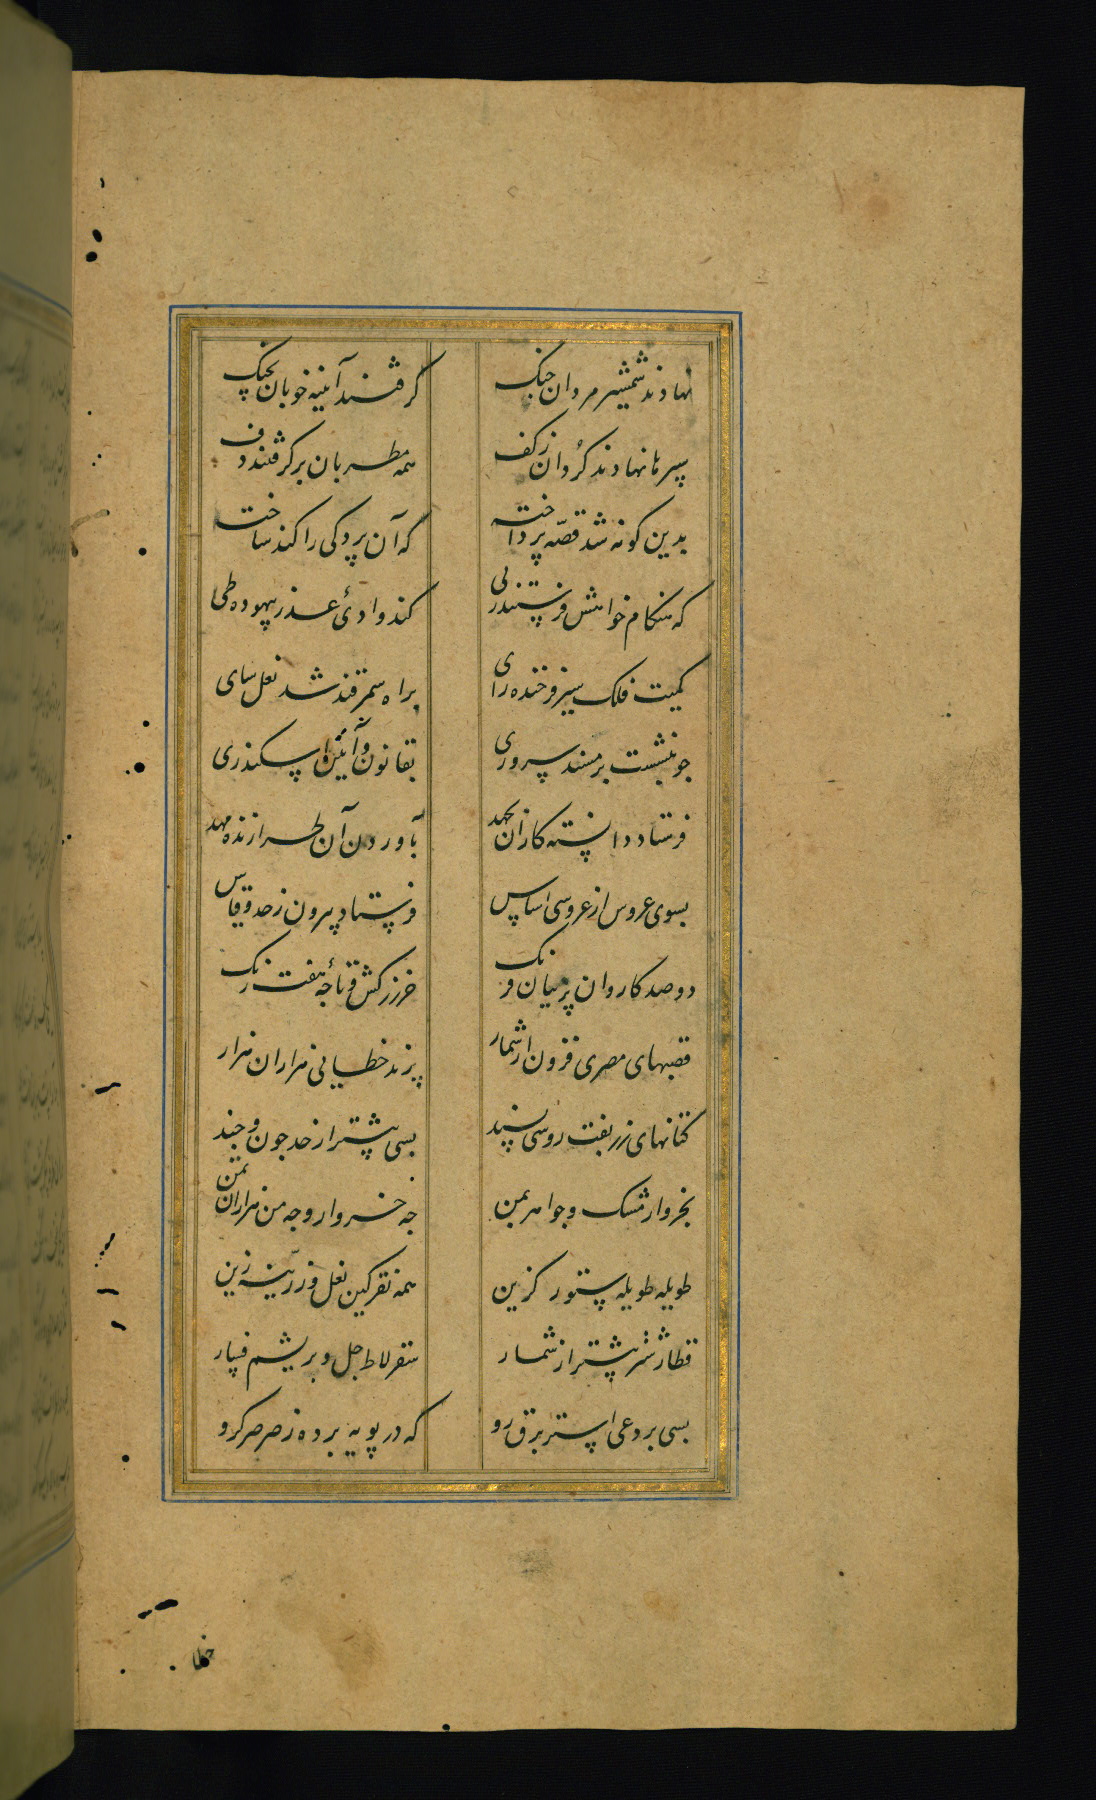 نهادند شمشیر مردان جنک کرفتند آینه خوبان بچنک
سپرها نهادند کُردان ز کف همه مطربان برکرفتند دف
بدین کونه شد قصّه پرداخته که آن پردکی را کند ساخته
که هنکام خواهش فرستند پی کند وادئ عذر بیهوده طی
کمیت فلک سیر فرخنده رای براه سمرقند شد نعل سای
جو بنشست بر مسند سروری بقانون و آئین اسکندری
فرستاد دانسته کاران بجهد بآوردن آن طرازنده مهد
بسوی عروس از عروسی اساس فرستاد بیرون ز حد و قیاس
دو صد کاروان پرنیان و رنک خز زرکش و تاجهٔ هفت رنک
قصبهای مصری فزون از شمار پرند خطایی هزاران هزار
کتانهای زربفت روسی پسند بسی بیشتر از حد جون و جند
بخروار مشک و جواهر بمن جه خروار و جه من هزاران تمن
طویله طویله ستور کزین همه نقرکین نعل و زرّینه زین
قطار شتر بیشتر از شمار سقرلاط جل و بریشم فسار
بسی بردعی استر برق رو که در پویه برده ز صرصر کرو
خطا